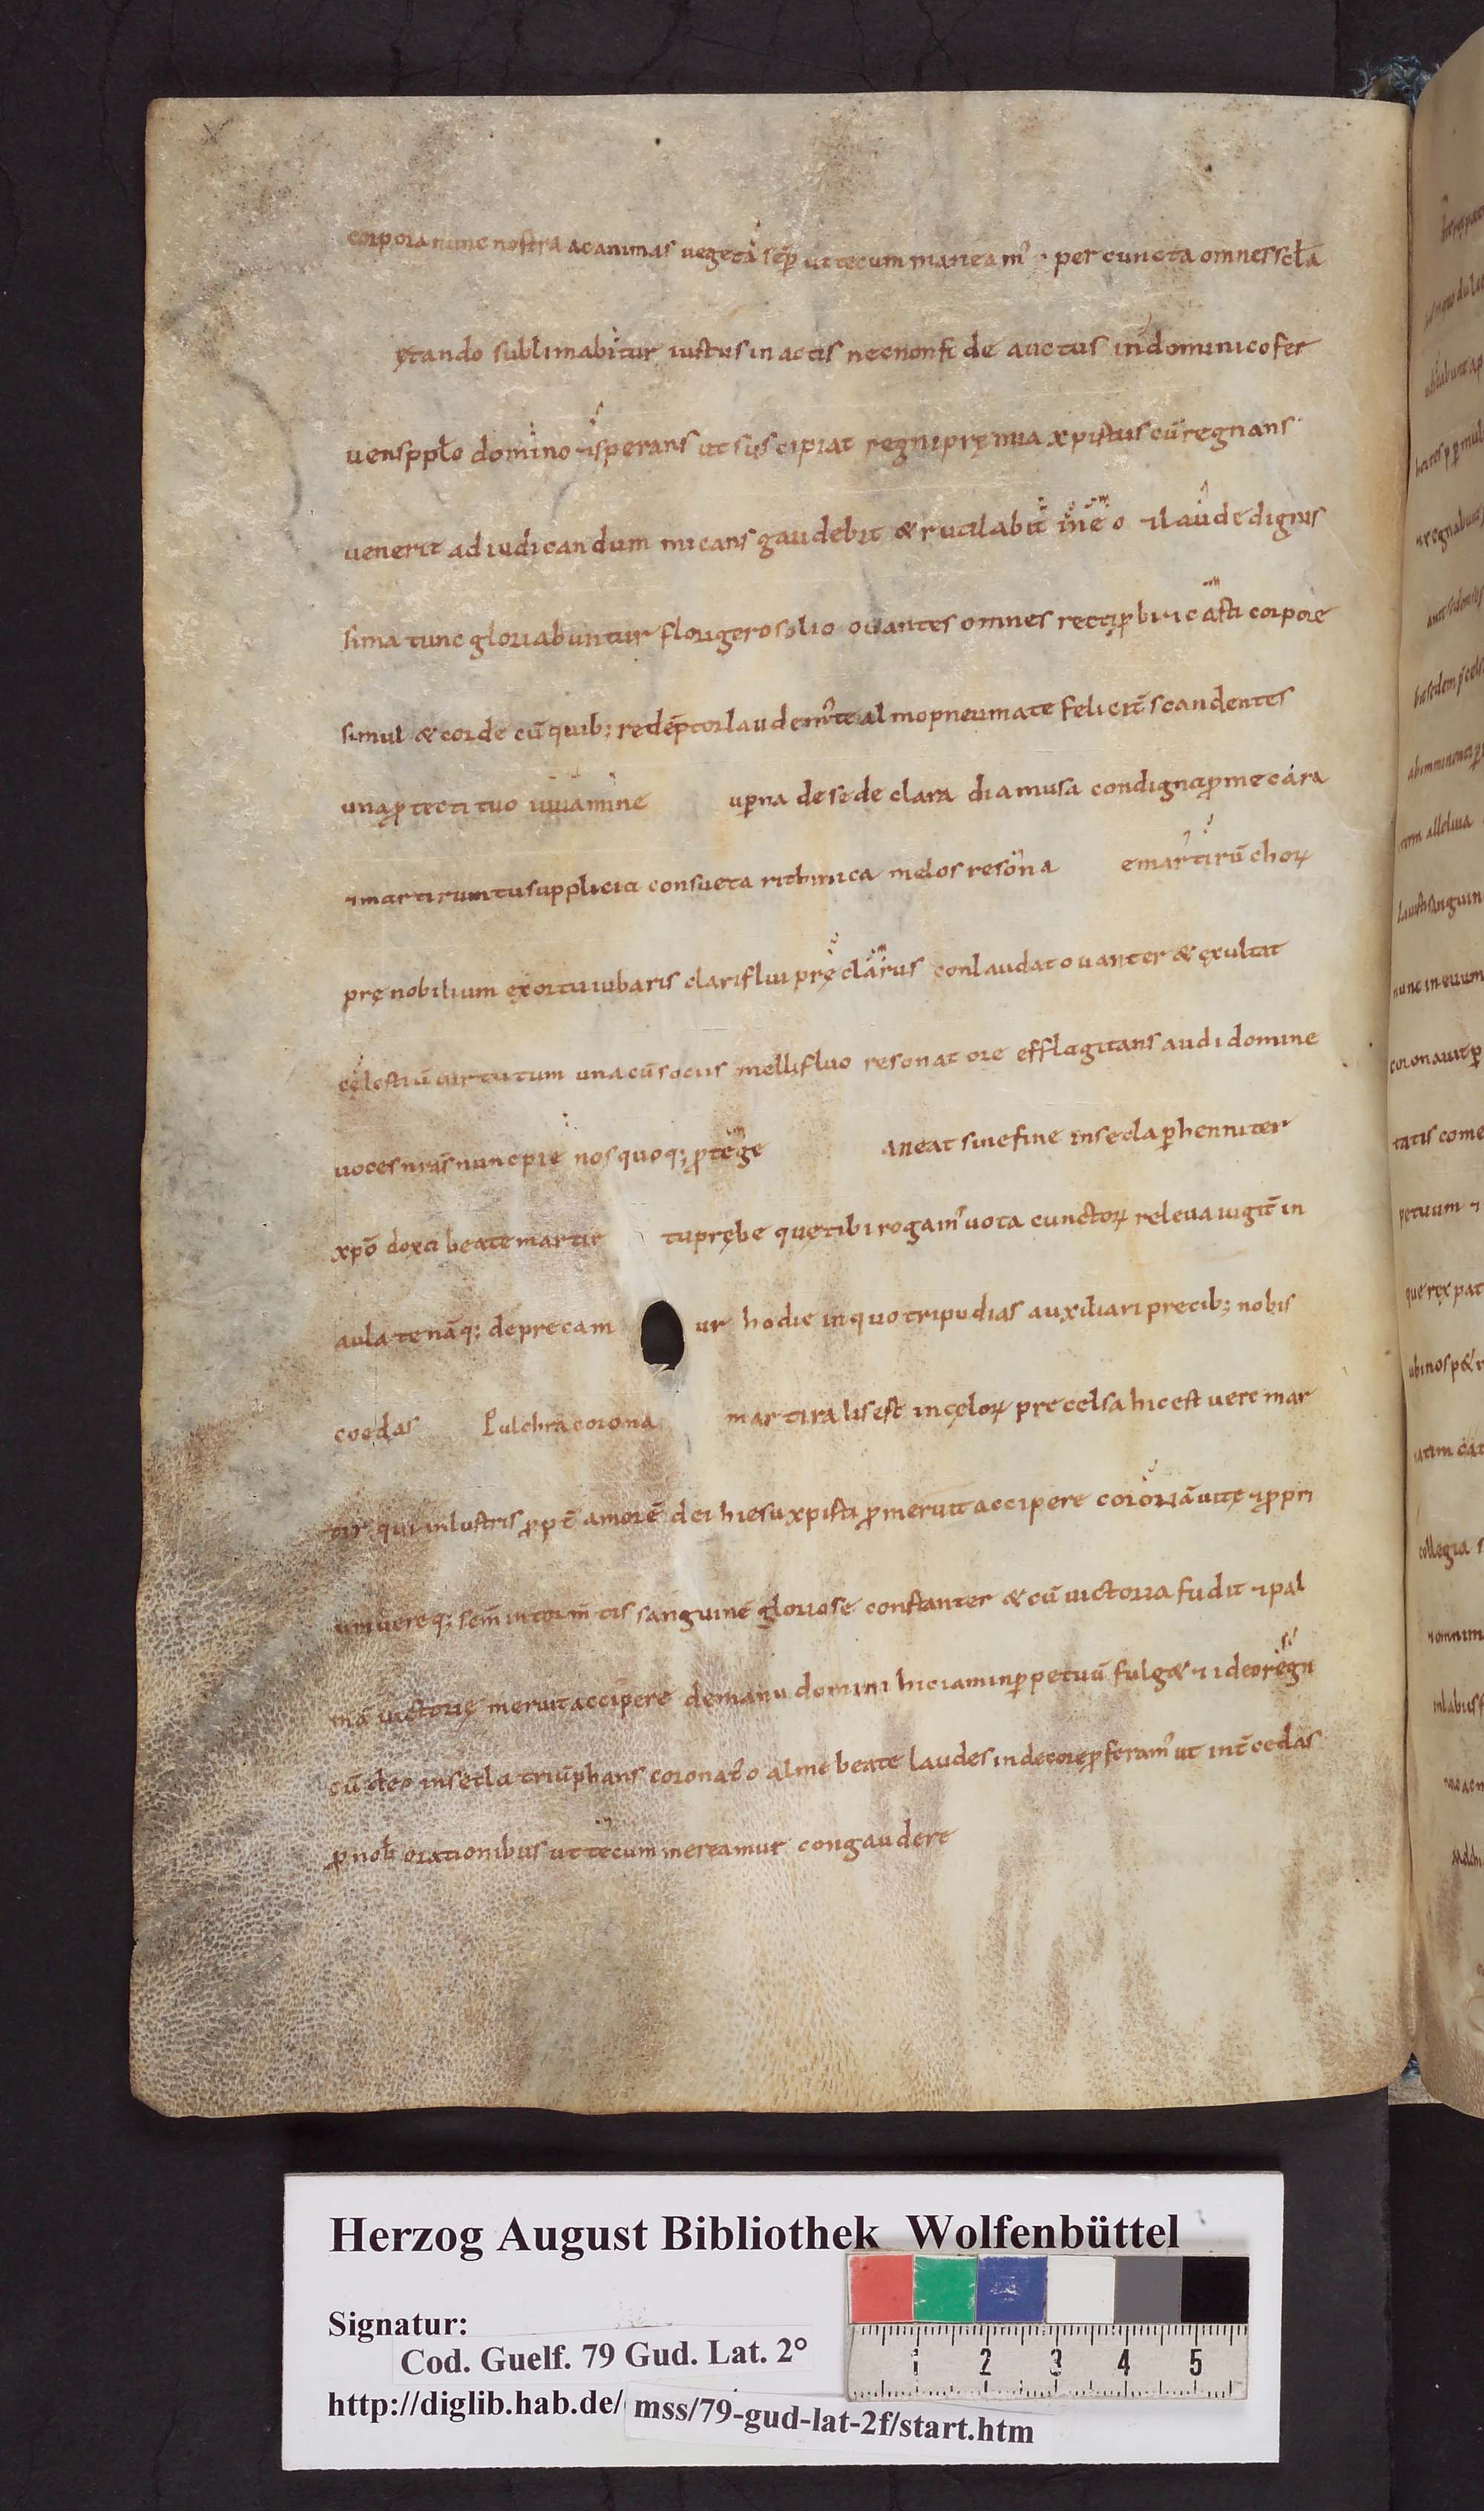 corpora nunc nostra ac animas uegeta sep̄ ut tecum maneam᾽ · per cuncta omnes scł̄a
ętando sublimabitur iustus in actis necnon fide auctus in dominico fer
uens ppło domino ⁊ sperans ut suscipiat regni pręmia xpistus cū regnans
uenerit ad iudicandum micans gaudebit & rutilabit in eo ⁊ laude dignis
sima tunc gloriabuntur florigero solio ouantes omnes recti ꝑbi uic casti corpore
simul & corde cū quib; redēptor laudem᾽ te almo pneumate felicit̄ scandentes
una ꝓtecti tuo iuuamine uꝑna de sede clara dia musa condigna ꝓme cára
⁊ martirum tu supplicia consueta rithmica melos resona e martirū choꝝ
prę nobilium exortu iubaris clariflui pręclarus conlaudat ouanter & ęxultat
cęlestiū uirtutum una cū sociis mellifluo resonat ore efflagitans audi domine
uoces nr̄as nunc pie nos quoq; ꝓtege aneat sine fine in secla ꝑhenniter
xpō doxa beate martir tu prębe quę tibi rogam᾽ uota cunctoꝝ releua uigit̄ in
aula te nāq; deprecam ur hodie in quo tripudias auxiliari precib; nobis
coedas Pulchra corona martiralis est in cęloꝝ precelsa hic est uere mar
tir qui inlustris ꝓpt̄ amorē dei hiesu xpisti ꝓmeruit accipere coronā uitę ⁊ ꝓpri
um uereq; sem̄ intorm̄tis sanguine gloriose constanter & cū uictoria fudit ⁊ pal
mā uictorię meruit accipere de manu domini hic iam in ꝑpetuū fulg& ⁊ ideo regn
cū deo in secla triūphans coronat᾽ o alme beate laudes in decore ꝓferam᾽ ut int̄cedas
ꝓ nob̄ orationibus ut tecum mereamur congaudere
Herzog August Bibliothek Wolfenbüttel
Signatur:
Cod. Guelf. 79 Gud. Lat. 2°
http://diglib.hab.de/ mss/79-gud-lat-2f/start.htm
1 2 3 4 5